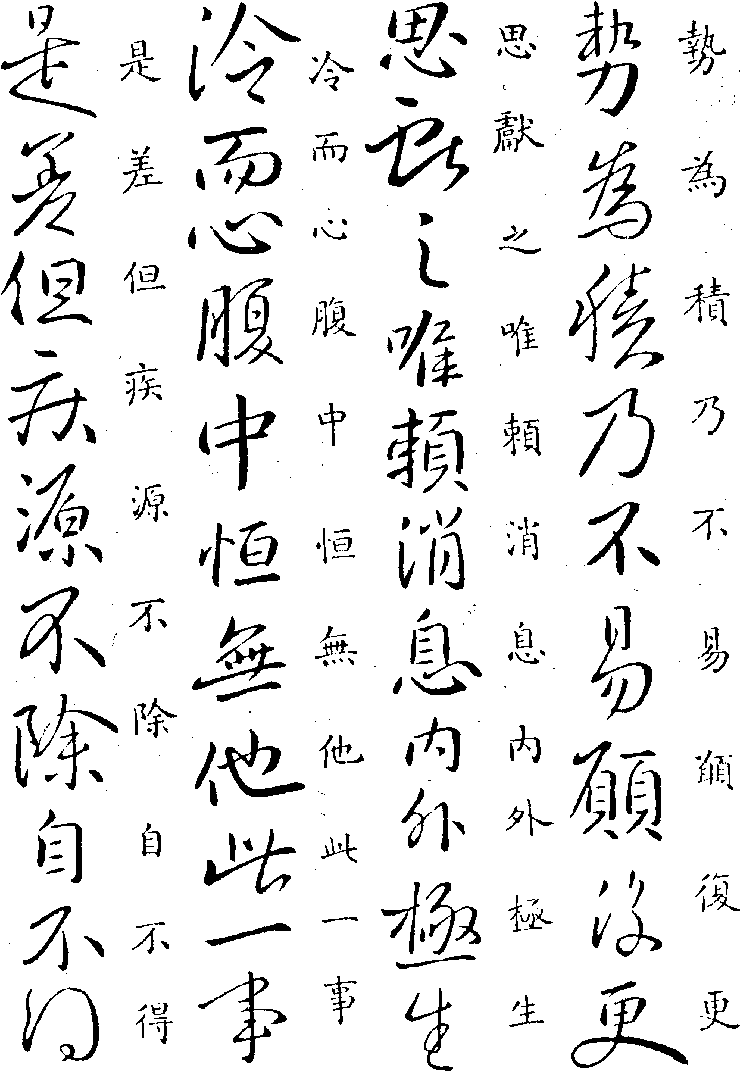 勢為積乃不易願復更
勢為積乃不易願復更
思獻之唯賴消息內外極生
思獻之唯賴消息內外極生
冷而心腹中恒無他此一事
冷而心腹中恒無他此一事
是差但疾源不除自不得
是差但疾源不除自不得